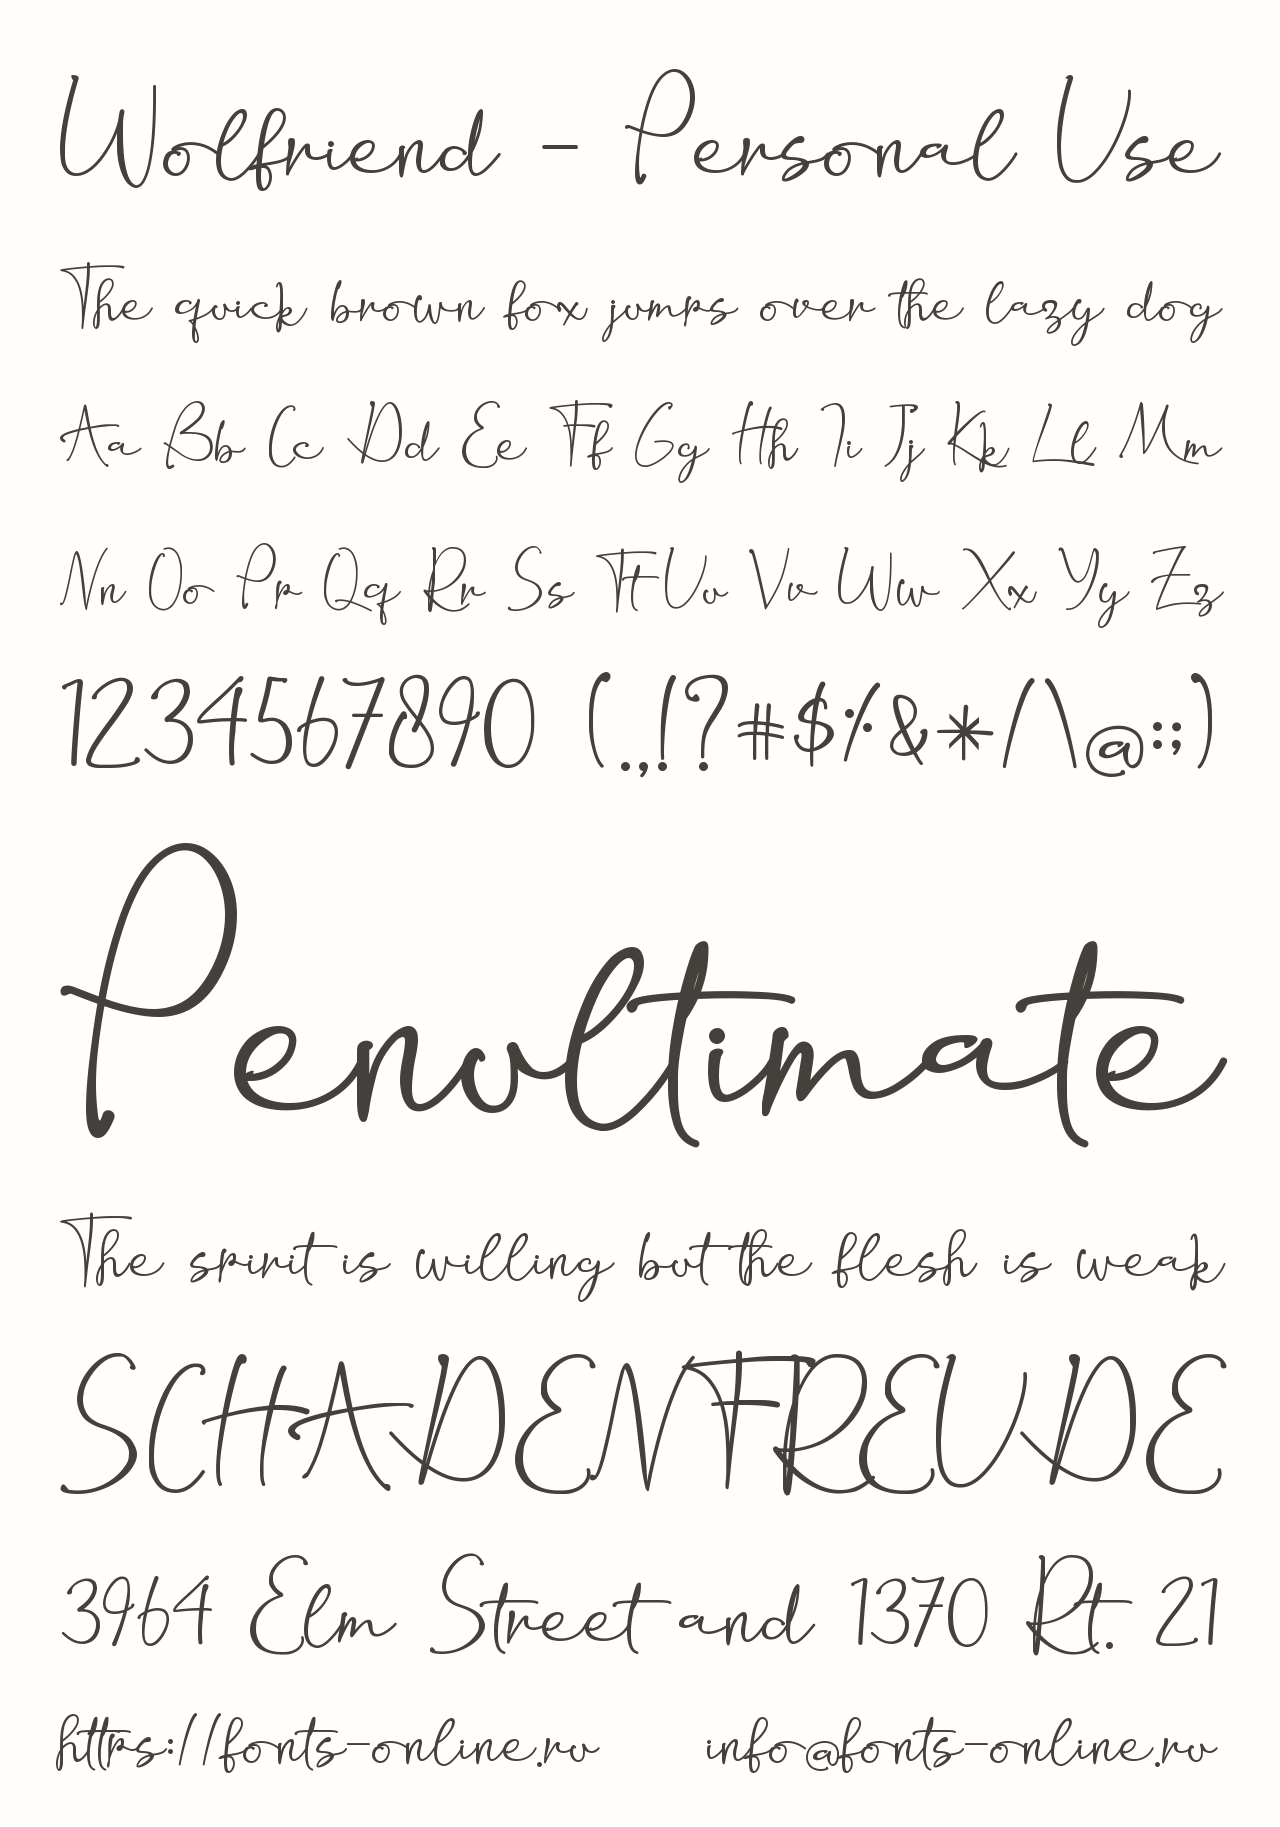 Wolfriend - Personal Use
The quick brown fox jumps over the lazy dog
Aa Bb Cc Dd Ee Ff Gg Hh Ii Jj Kk Ll Mm
Nn Oo Pp Qq Rr Ss Tt Uu Vv Ww Xx Yy Zz
1234567890 (.,!?#$%&*/\@:;)
Penultimate
The spirit is willing but the flesh is weak
SCHADENFREUDE
3964 Elm Street and 1370 Rt. 21
https://fonts-online.ru info@fonts-online.ru